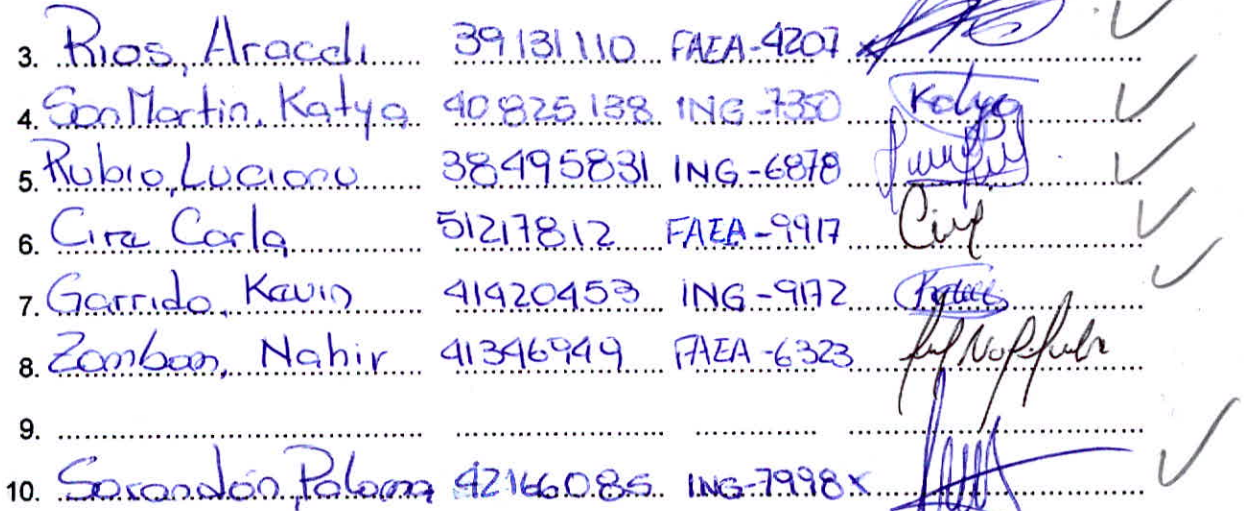 3. Rios, Araceli 39131110 FAEA-4207
4. San Martin, Katya 40825138 ING-7350 Katya
5. Rubio, Luciano 38495831 ING-6878
6. Cire Carla 51217812 FAEA-9917
7. Garrido, Kevin 41420453 ING-9172
8. Zamban, Nahir 41346949 FAEA-6323
9.
10. Sarandón, Paloma 42166085 ING-7998 X